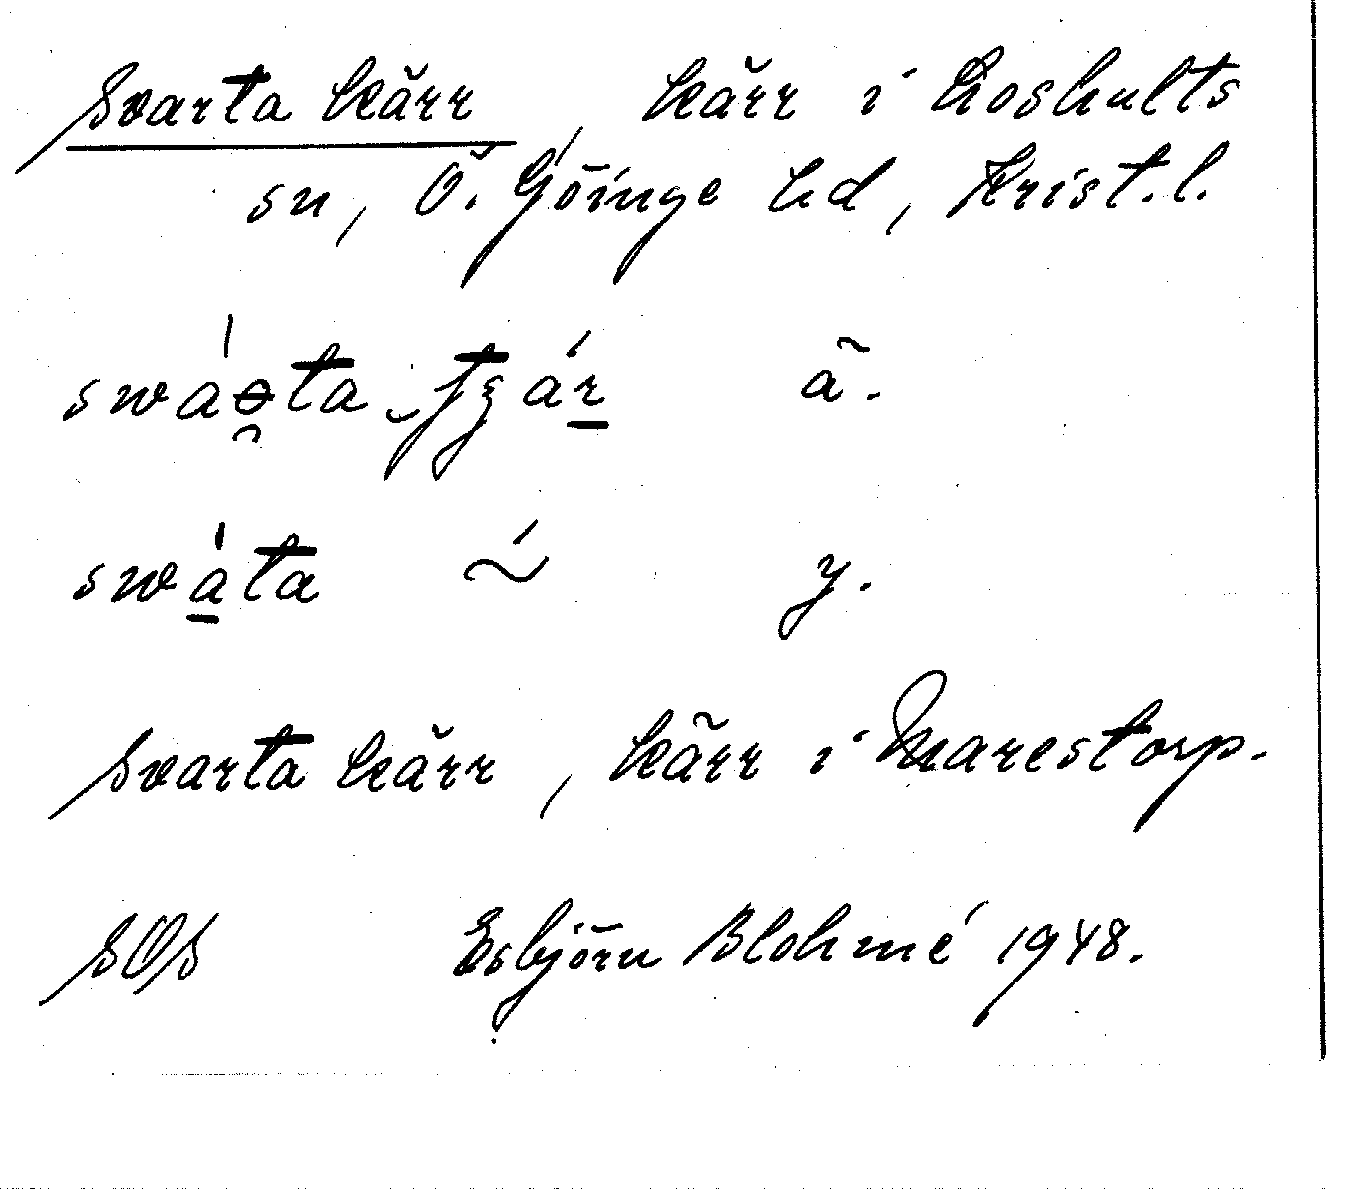 Svarta kärr, kärr i Loshults
sn, Ö. Göinge hd, Krist.l.
ä.
y.
Svarta kärr, kärr i Marestorp.
SOS Esbjörn Blohmé 1948.